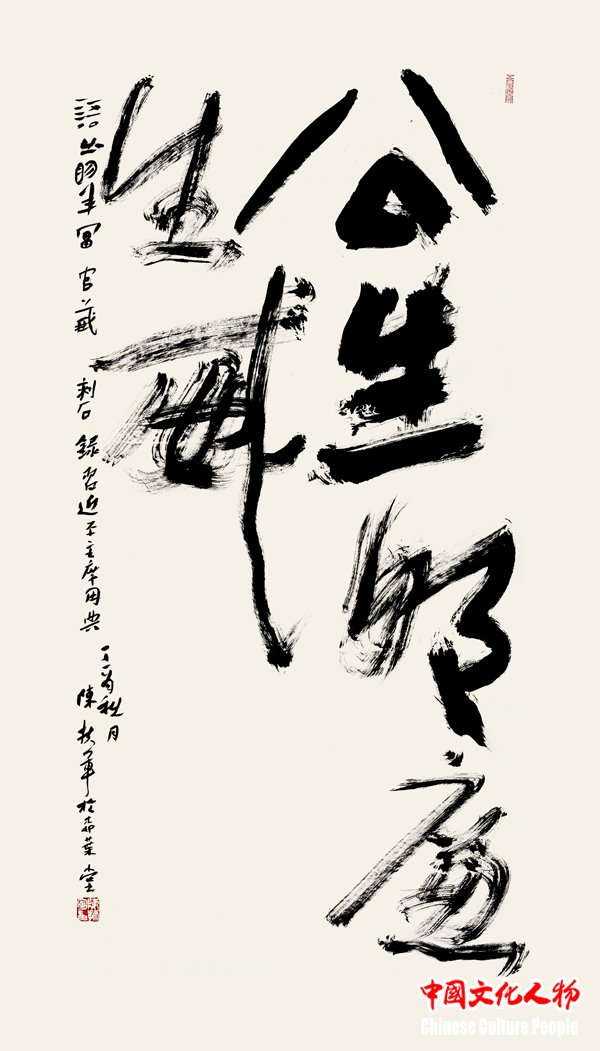 公生明廉
生威
語出明年富官箴刻石錄習近平主席用典
丁酉秋月
陳扶軍於堂
中國文化人物
Chinese Culture People